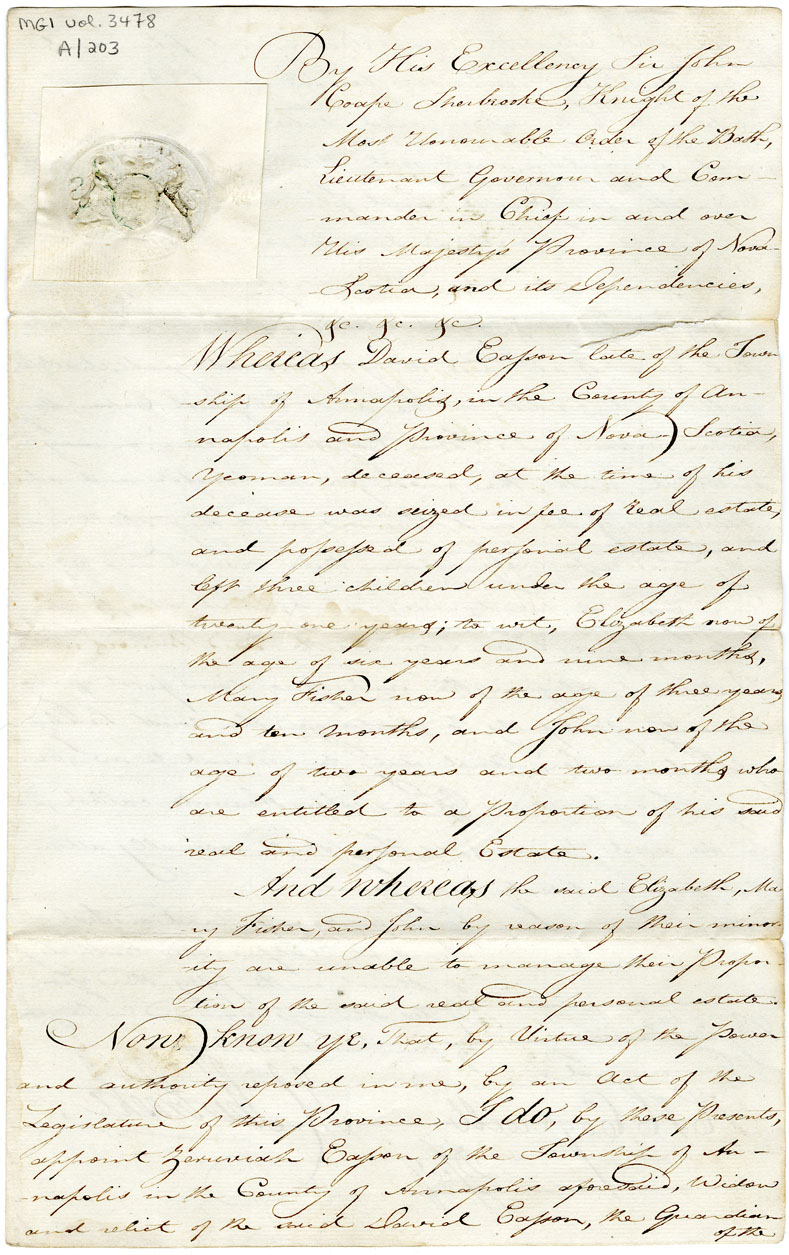 MG1 vol. 3478
A/203
By His Excellency Sir John
Coape Sherbrooke, Knight of the
Most Honourable Order of the Bath,
Lieutenant Governour and Com-
mander in Chief in and over
His Majesty's Province of Nova-
Scotia, and its Dependencies,
&c. &c. &c.
Whereas David Eaſson late of the Town
-ship of Annapolis, in the County of An-
napolis and Province of Nova Scotia,
Yeoman, deceased, at the time of his
decease was seized in fee of real estate,
and poſseſsed of perſonal estate, and
left three children under the age of
twenty one years; to wit, Elizabeth now of
the age of six years and nine months,
Mary Fisher now of the age of three years
and ten months, and John now of the
age of two years and two months who
are entitled to a Proportion of his said
real and perſonal Estate.
And whereas the said Elizabeth, Ma-
ry Fisher, and John by reason of their minor-
ity are unable to manage their Propor-
tion of the said real and personal estate.
Now know ye, That, by Virtue of the Power
and authority reposed in me, by an Act of the
Legislature of this Province, I do, by these Presents,
appoint Zeruviah Eaſson of the Township of An-
-napolis in the County of Annapolis aforesaid, Widow
and relict of the said David Eaſson, the Guardian
of the